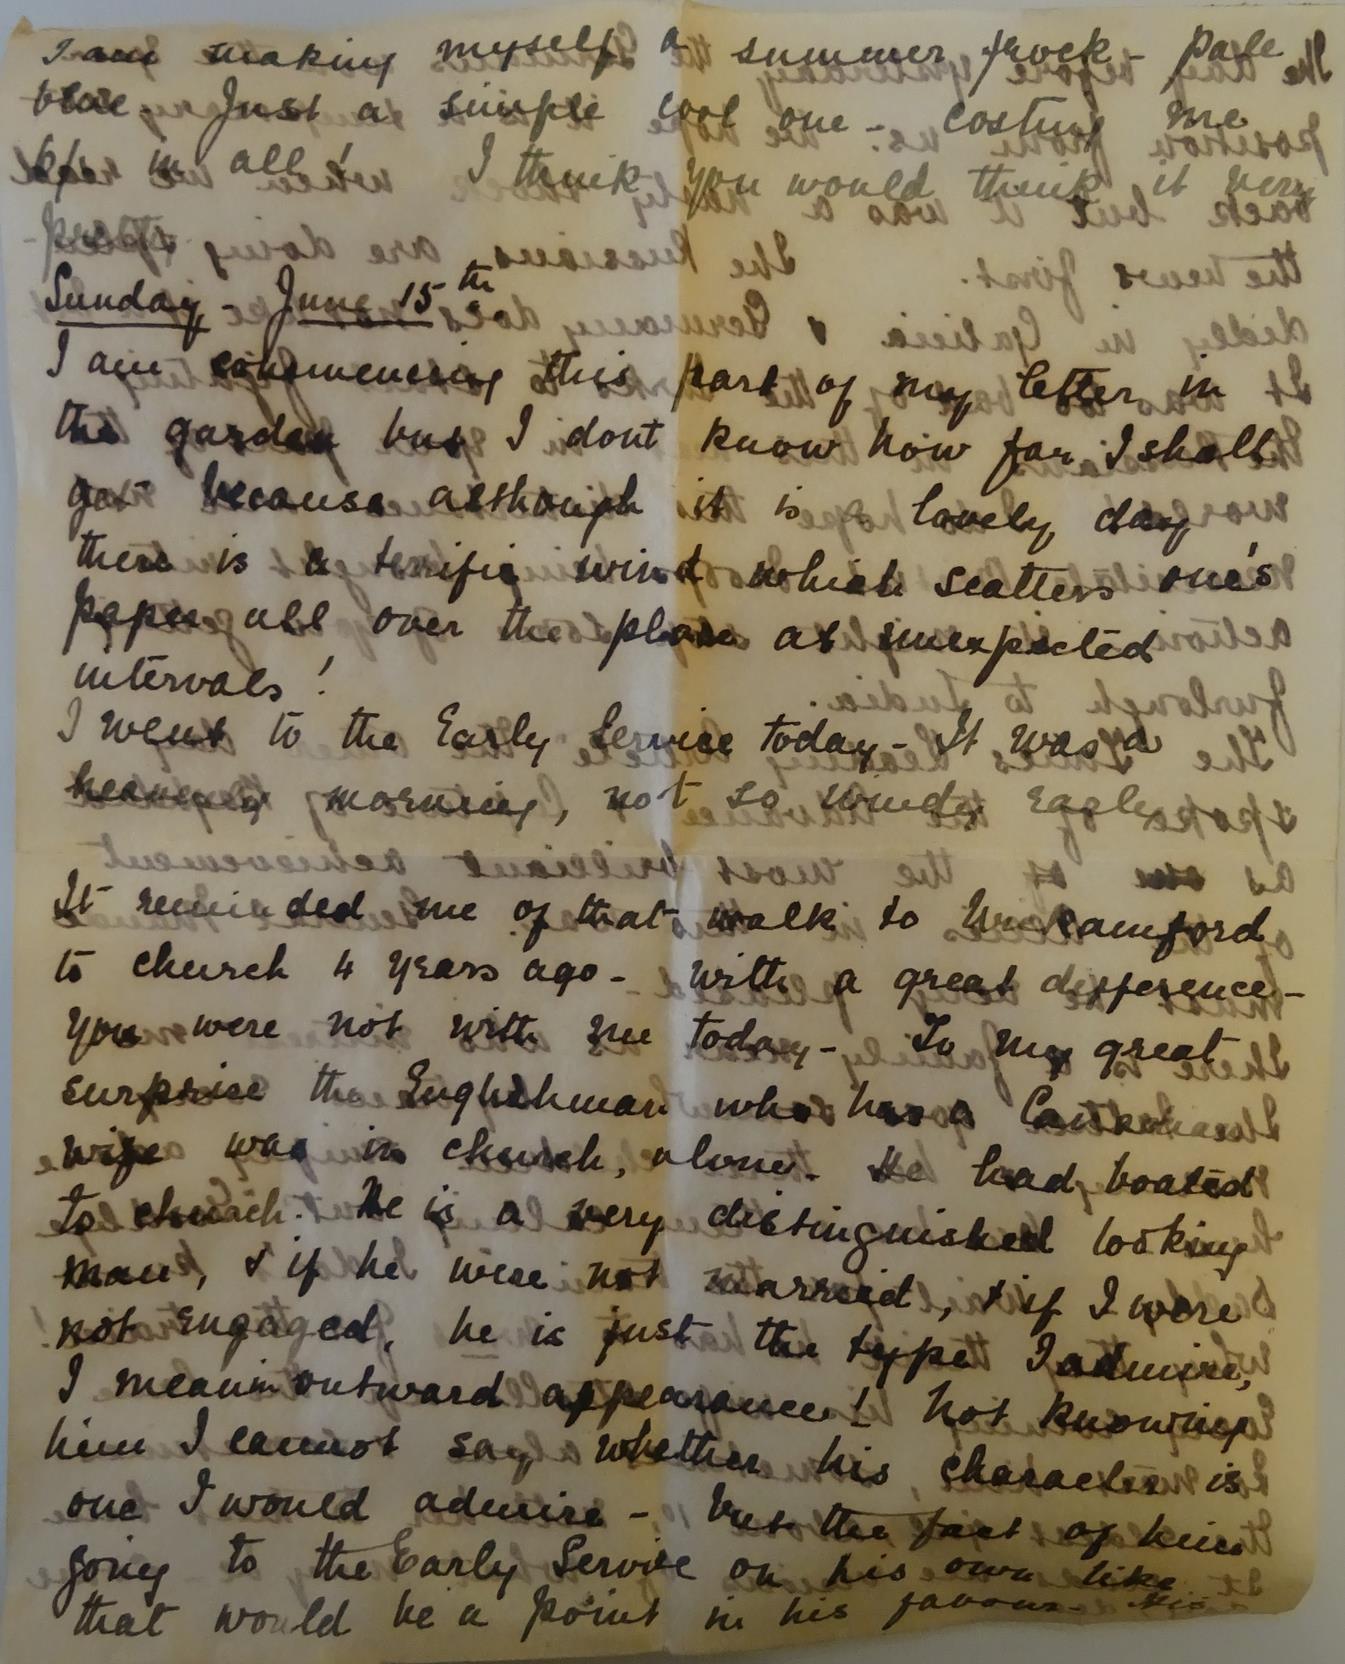 I am making myself a summer frock - pale
blue. Just a simple cool one - costing me
in all! I think you would think it very
pretty.
Sunday - June 15th
I am commencing this part of my letter in
the garden but I dont know how far I shall
get because although it is a lovely day
there is a terrific wind which scatters one's
paper all over the place at unexpected
intervals!
I went to the Early Service today - It was a
heavenly morning, not so windy early
It reminded me of that walk to Wickamford
to church 4 years ago - with a great difference -
you were not with me today - To my great
surprise the Englishman who has a
wife was in church, alone. He had boated
to church. He is a very distinguished looking
man, & if he were not married, & if I were
not engaged, he is just the type I admire,
I mean in outward appearance! Not knowing
him I cannot say whether his character is
one I would admire - but the fact of him
going to the Early Service on his own like
that would be a point in his favour - His